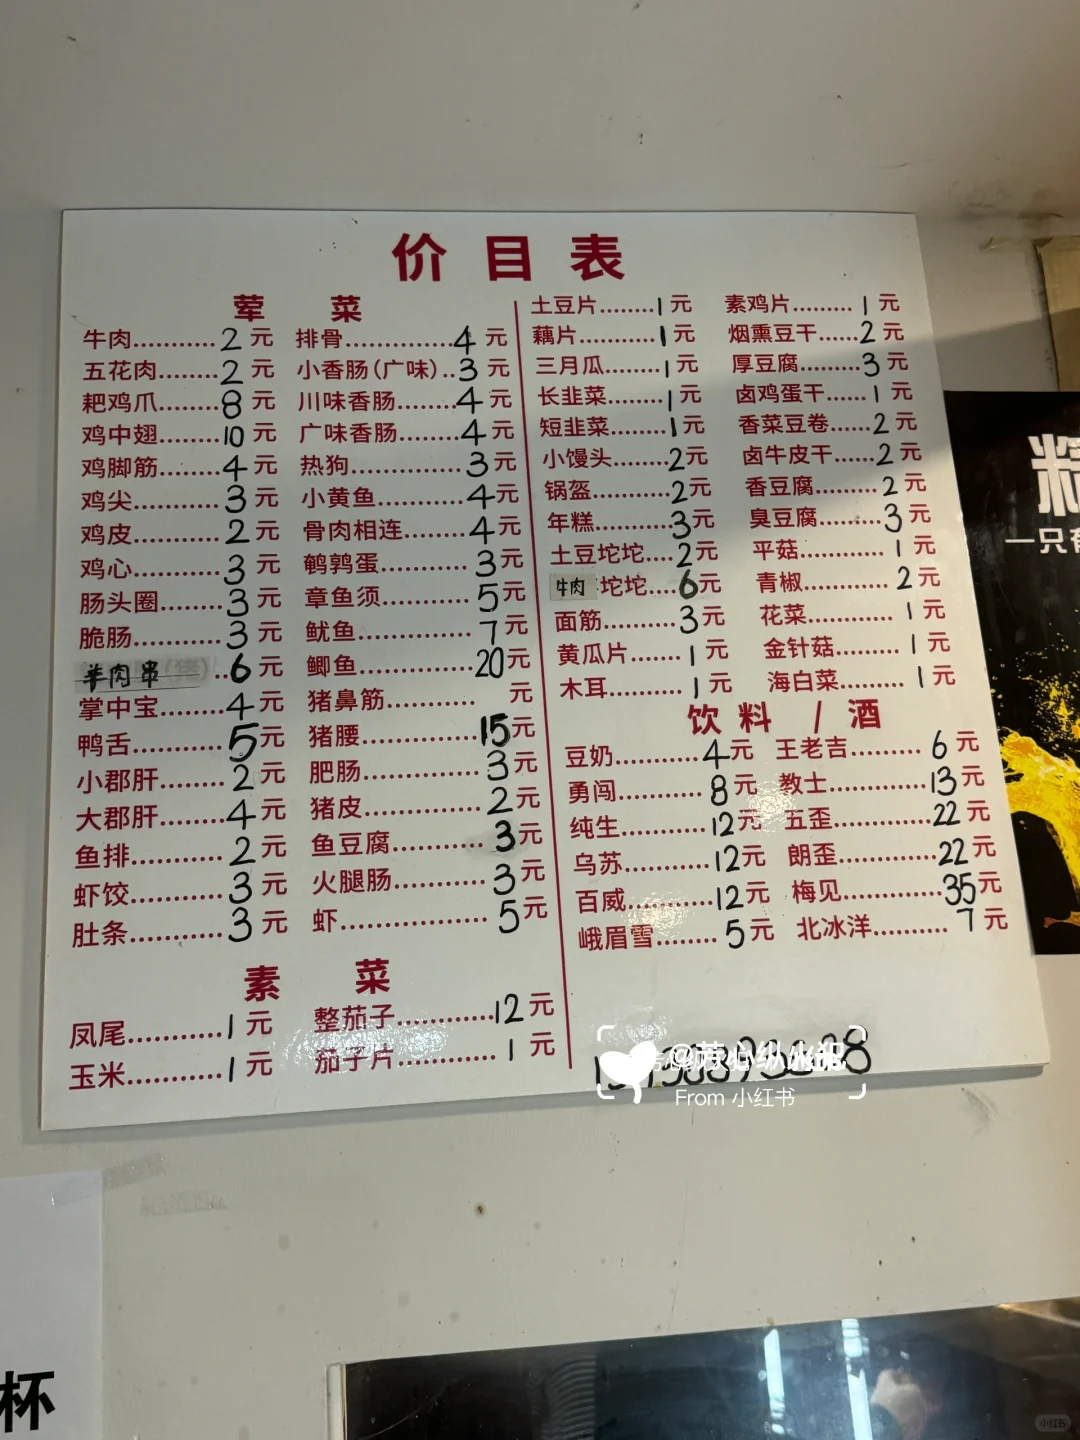 价目表
荤 菜
牛肉...........2元
五花肉........2元
耙鸡爪........8元
鸡中翅........10元
鸡脚筋........4元
鸡尖...........3元
鸡皮...........2元
鸡心...........3元
肠头圈........3元
脆肠...........3元
羊肉串..6元
掌中宝........4元
鸭舌...........5元
小郡肝........2元
大郡肝........4元
鱼排...........2元
虾饺...........3元
肚条...........3元
排骨..............4元
小香肠(广味)..3元
川味香肠.......4元
广味香肠.......4元
热狗..............3元
小黄鱼...........4元
骨肉相连.......4元
鹌鹑蛋...........3元
章鱼须...........5元
鱿鱼..............7元
鲫鱼..............20元
猪鼻筋...........元
猪腰..............15元
肥肠..............3元
猪皮..............2元
鱼豆腐...........3元
火腿肠...........3元
虾.................5元
素 菜
凤尾...........1元
玉米...........1元
整茄子...........12元
茄子片...........1元
土豆片........1元
藕片...........1元
三月瓜........1元
长韭菜........1元
短韭菜........1元
小馒头........2元
锅盔...........2元
年糕...........3元
土豆坨坨....2元
牛肉坨坨....6元
面筋...........3元
黄瓜片........1元
木耳...........1元
素鸡片.........1元
烟熏豆干......2元
厚豆腐.........3元
卤鸡蛋干......1元
香菜豆卷......2元
卤牛皮干......2元
香豆腐.........2元
臭豆腐.........3元
平菇............1元
青椒............2元
花菜............1元
金针菇.........1元
海白菜.........1元
饮料 / 酒
豆奶...........4元
勇闯...........8元
纯生...........12元
乌苏...........12元
百威...........12元
峨眉雪........5元
王老吉.........6元
教士............13元
五歪............22元
朗歪............22元
梅见............35元
北冰洋..........7元
From 小红书
一只有
杯
小红书